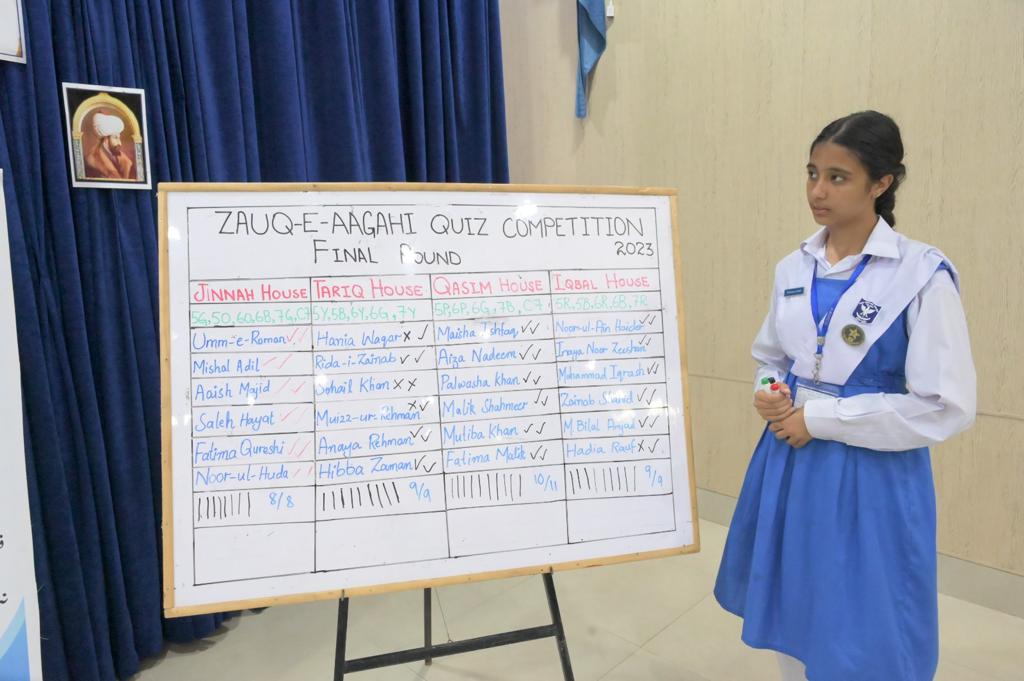 ZAUQ-E-AAGAHI QUIZ COMPETITION
FINAL ROUND 2023
JINNAH HOUSE TARIQ HOUSE QASIM HOUSE IQBAL HOUSE
5G,5O,6O,6B,7G,C7 5Y,5B,6Y,6G,7Y 5P,6P,6G,7B,C7 5R,5B,6R,6B,7R
Umm-e-Roman ✓✓ Hania Waqar ✗✓ Maisha Ishfaq ✓✓ Noor-ul-Ain Haider ✓✓
Mishal Adil ✓✓ Rida-i-Zainab ✓✓ Aiza Nadeem ✓✓ Inaya Noor Zeeshan ✓✓
Aaish Majid ✓✓ Sohail Khan ✗✗ Palwasha Khan ✓✓ Mohammad Iqrash ✓✓
Saleh Hayat ✓✓ Muizz-ur-Rehman ✗✓ Malik Shahmeer ✓✓ Zainab ✓✓
Fatima Qureshi ✓✓ Anaya Rehman ✓✓ Mutiba Khan ✓✓ M. Bilal Amjad ✓✓
Noor-ul-Huda ✓✓ Hibba Zaman ✓✓ Fatima Malik ✓✓ Hadia Rauf ✗✓
8/8 9/9 10/11 9/9